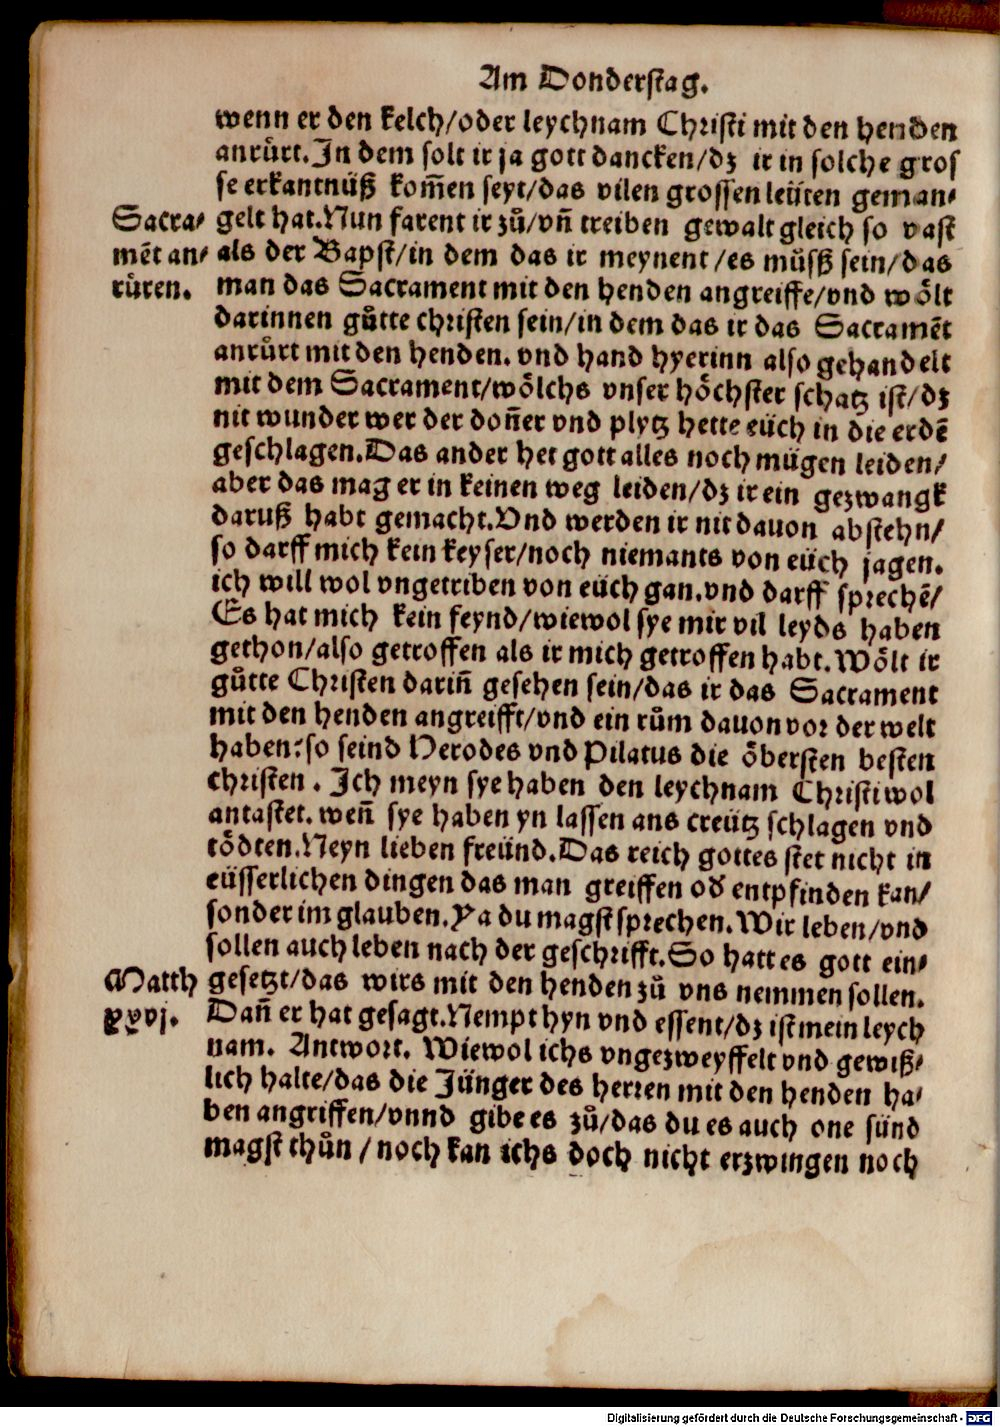 Am Donderstag.
wenn er den kelch/oder leychnam Christi mit den henden
anrůrt.In dem solt ir ja gott dancken/dz ir in solche gros
se erkantnüß kom̄en seyt/das vilen grossen leüten geman⸗
gelt hat.Nun farent ir zů/vn̄ treiben gewalt gleich so vast
Sacra⸗
mēt an⸗
rüren.
als der Bapst/in dem das ir meynent/es můsß sein/das
man das Sacrament mit den henden angreiffe/vnd wölt
darinnen gůtte christen sein/in dem das ir das Sacramēt
anrůrt mit den henden. vnd hand hyerinn also gehandelt
mit dem Sacrament/wölchs vnser höchster schatz ist/dz
nit wunder wer der don̄er vnd plytz hette eüch in die erdē
geschlagen.Das ander het gott alles noch mügen leiden/
aber das mag er in keinen weg leiden/dz ir ein gezwangk
daruß habt gemacht.Vnd werden ir nit dauon abstehn/
so darff mich kein keyser/noch niemants von eüch jagen.
ich will wol vngetriben von eüch gan.vnd darff sprechē/
Es hat mich kein feynd/wiewol sye mir vil leyds haben
gethon/also getroffen als ir mich getroffen habt.Wölt ir
gůtte Christen darin̄ gesehen sein/das ir das Sacrament
mit den henden angreifft/vnd ein rům dauon vor der welt
haben:so seind Herodes vnd Pilatus die öbersten besten
christen. Ich meyn sye haben den leychnam Christi wol
antastet. wen̄ sye haben yn lassen ans creütz schlagen vnd
tödten.Neyn lieben freünd.Das reich gottes stet nicht in
eüsserlichen dingen das man greiffen od entpfinden kan/
sonder im glauben.Ya du magst sprechen.Wir leben/vnd
sollen auch leben nach der geschrifft.So hatt es gott ein⸗
Matth
xxvj.
gesetzt/das wirs mit den henden zů vns nemmen sollen.
Dan̄ er hat gesagt.Nempt hyn vnd essent/dz ist mein leych
nam. Antwort. Wiewol ichs vngezweyffelt vnd gewiß⸗
lich halte/das die Jünger des herren mit den henden ha⸗
ben angriffen/vnnd gibe es zů/das du es auch one sünd
magst thůn/noch kan ichs doch nicht erzwingen noch
Digitalisierung gefördert durch die Deutsche Forschungsgemeinschaft - DFG